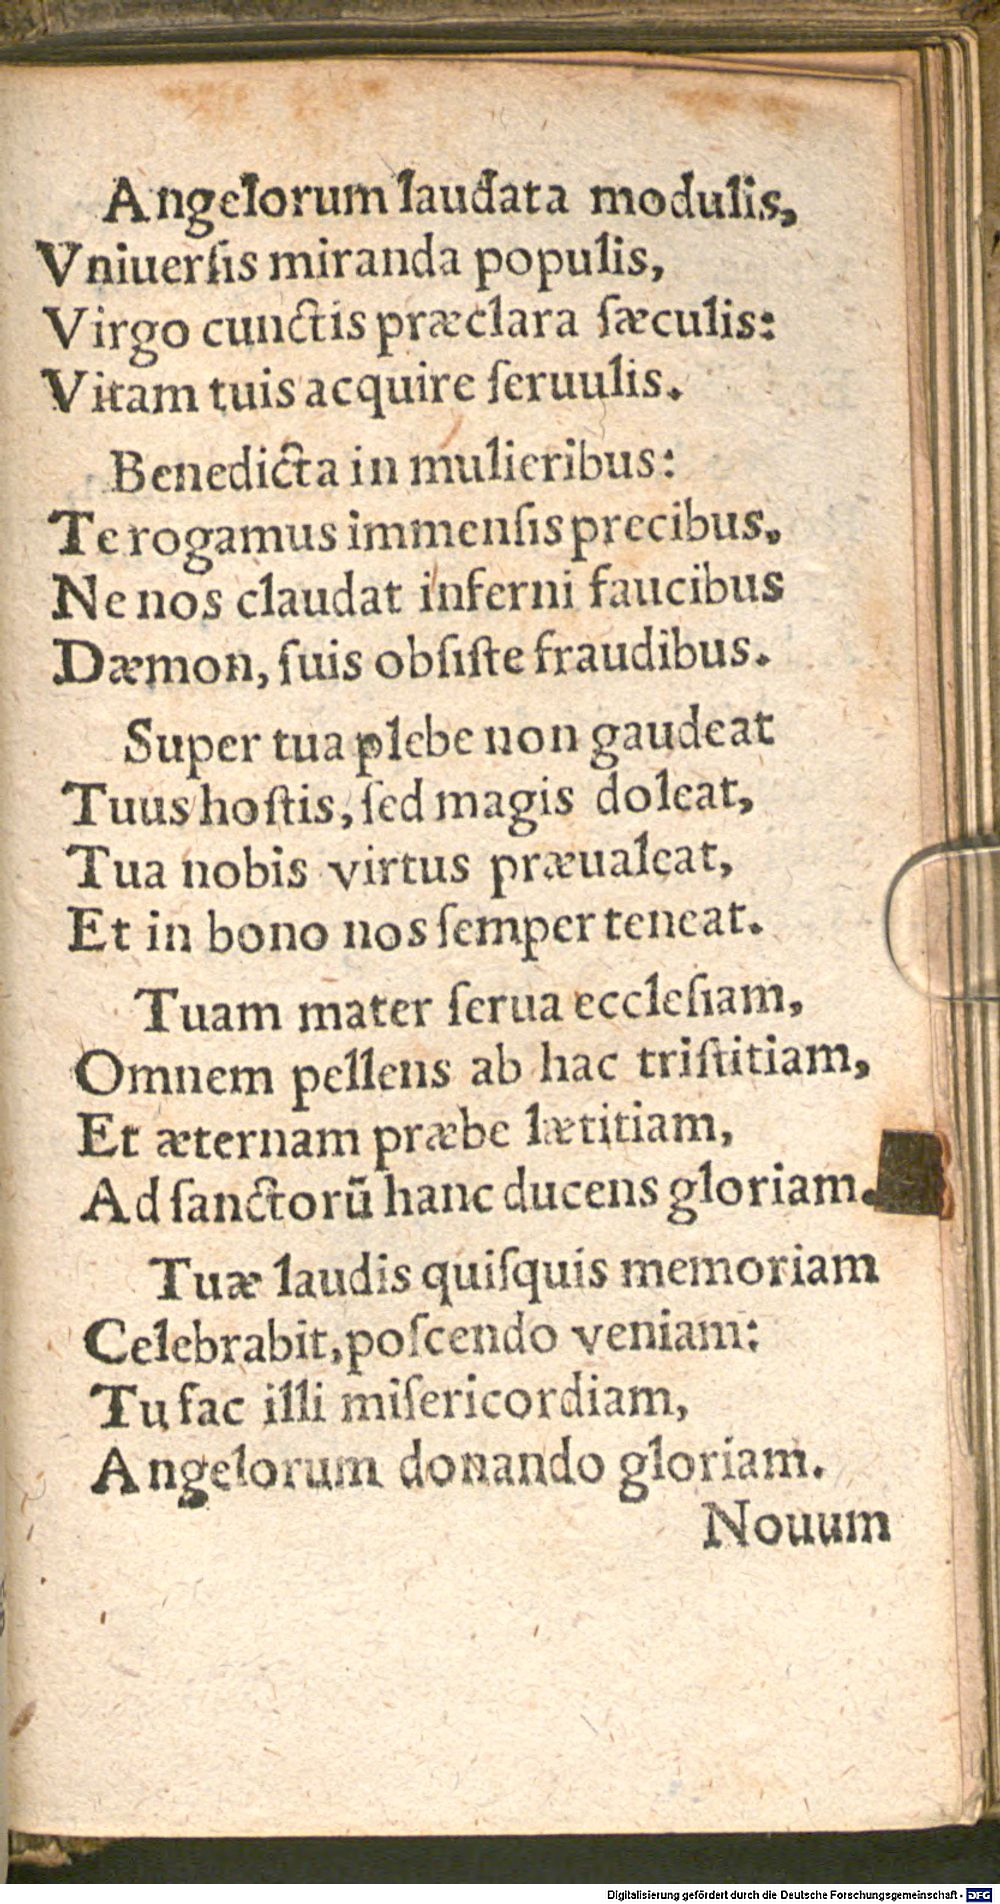 Angelorum laudata modulis,
Vniuerſis miranda populis,
Virgo cunctis præclara ſæculis:
Vitam tuis acquire ſeruulis.
Benedicta in mulieribus:
Te rogamus immenſis precibus.
Ne nos claudat inferni faucibus
Dæmon, ſuis obſiſte fraudibus.
Super tua plebe non gaudeat
Tuus hoſtis, ſed magis doleat,
Tua nobis virtus præualeat,
Et in bono nos ſemper teneat.
Tuam mater ſerua eccleſiam,
Omnem pellens ab hac triſtitiam,
Et æternam præbe lætitiam,
Ad ſanctorū hanc ducens gloriam.
Tuæ laudis quiſquis memoriam
Celebrabit, poſcendo veniam:
Tu fac illi miſericordiam,
Angelorum donando gloriam.
Nouum
Digitalisierung gefördert durch die Deutsche Forschungsgemeinschaft - DFG